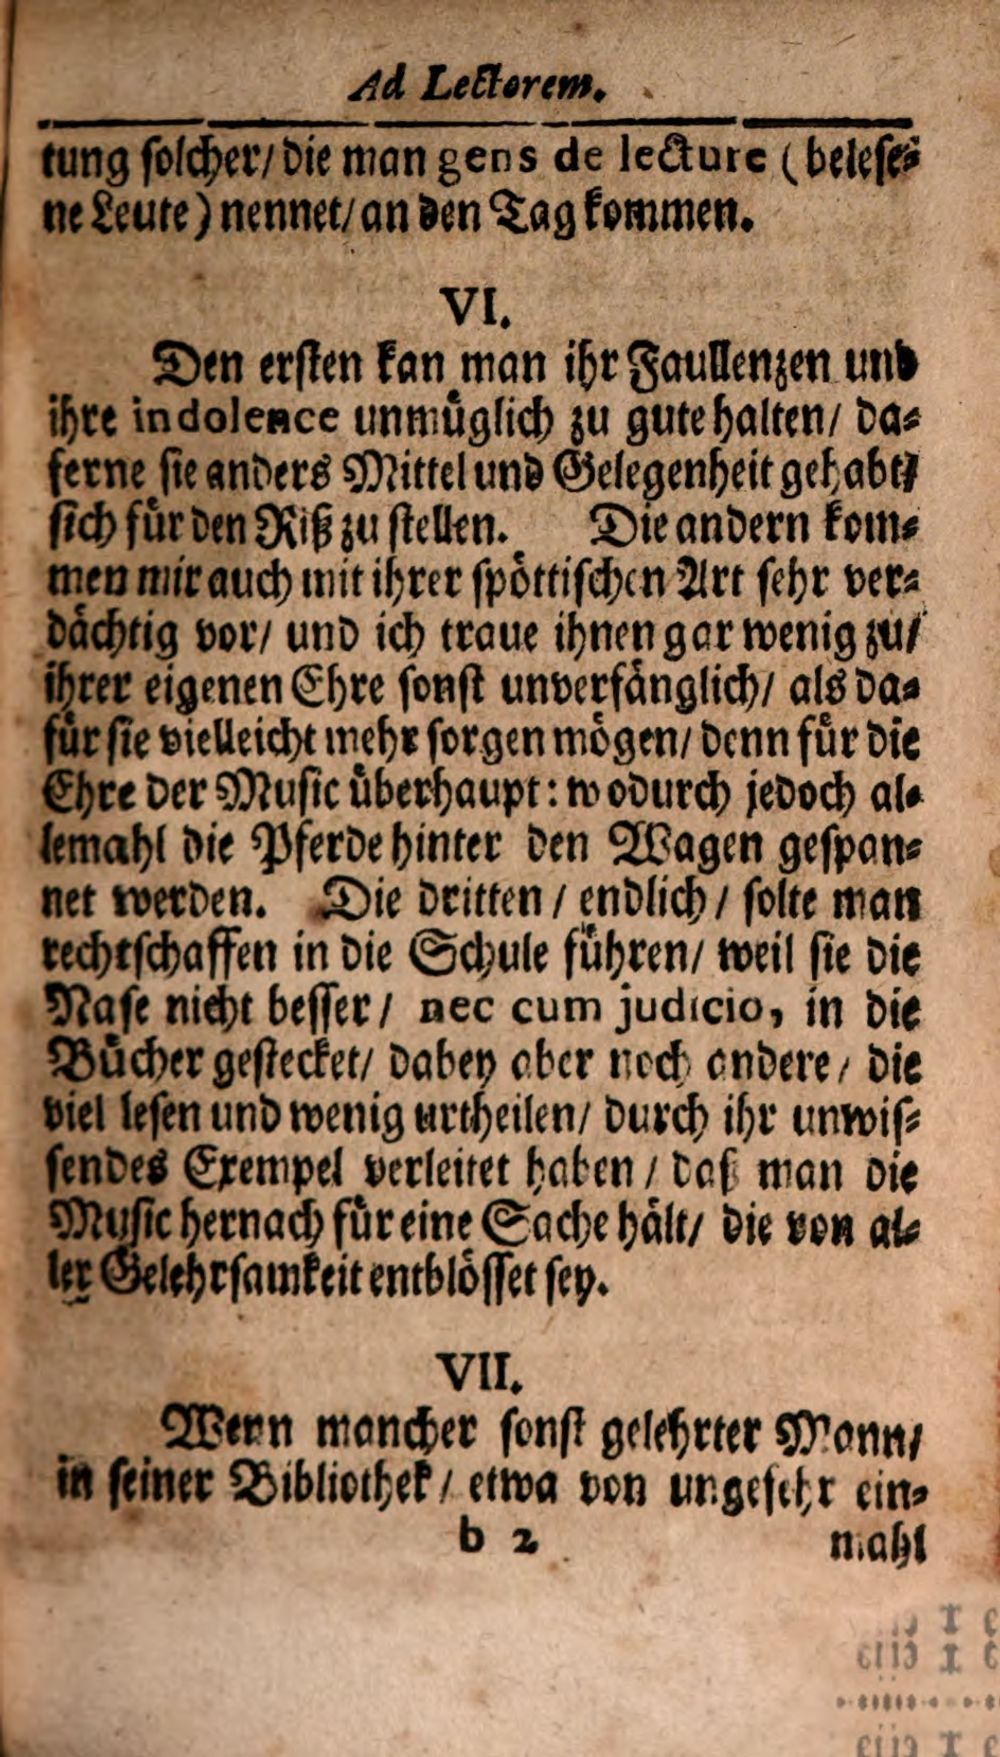 Ad Lectorem.
tung solcher/ die man gens de lecture (belese-
ne Leute) nennet/ an den Tag kommen.
VI.
Den ersten kan man ihr Faullenzen und
ihre indolence unmüglich zu gute halten/ da-
ferne sie anders Mittel und Gelegenheit gehabt/
sich für den Riß zu stellen. Die andern kom-
men mir auch mit ihrer spöttischen Art sehr ver-
dächtig vor/ und ich traue ihnen gar wenig zu/
ihrer eigenen Ehre sonst unverfänglich/ als da-
für sie vielleicht mehr sorgen mögen/ denn für die
Ehre der Music überhaupt: wodurch jedoch al-
lemahl die Pferde hinter den Wagen gespan-
net werden. Die dritten / endlich / solte man
rechtschaffen in die Schule führen/ weil sie die
Nase nicht besser / nec cum judicio, in die
Bücher gestecket/ dabey aber noch andere / die
viel lesen und wenig urtheilen/ durch ihr unwis-
sendes Exempel verleitet haben / daß man die
Music hernach für eine Sache hält/ die von al-
ler Gelehrsamkeit entblösset sey.
VII.
Wenn mancher sonst gelehrter Mann/
in seiner Bibliothek / etwa von ungefehr ein-
b 2 mahl